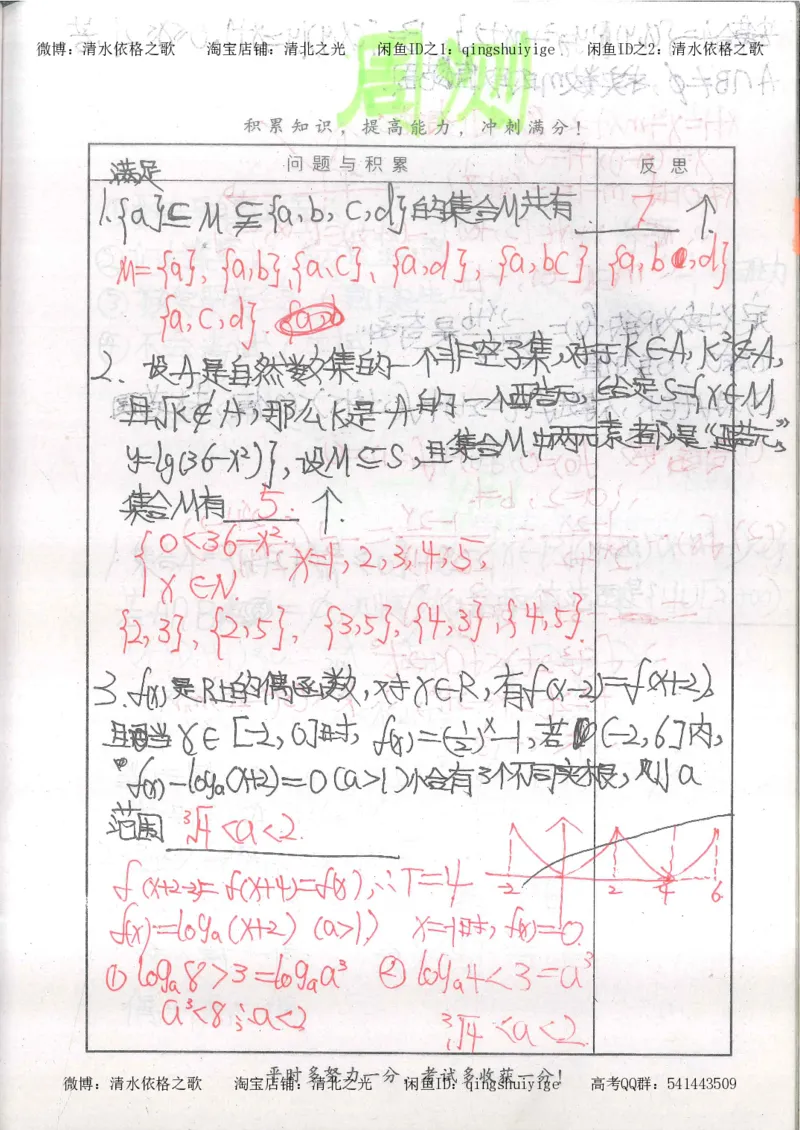 微博：清水依格之歌 淘宝店铺：清北之光 闲鱼ID之1：qingshuiyige 闲鱼ID之2：清水依格之歌
周测
积累知识，提高能力，冲刺满分！
问题与积累 反思
满足
1.{a}⊆M⫋{a,b,c,d}的集合M共有 7 个
M={a}, {a,b}, {a,c}, {a,d}, {a,bc} {a,b,d}
{a,c,d}
2. 设A是自然数集的一个非空子集,对于K∈A, K²∉A,
且√K∉A,那么K是A的一个"酷元,给定S={x∈N|
y=lg(36-x²)},设M⊆S,且集合M中两元素都是"酷元"
集合M有 5 个.
{0<36-x². x=1,2,3,4,5,
x∈N.
{2,3}, {2,5}, {3,5}, {4,3}, {4,5}.
3. f(x)是R上的偶函数,对于x∈R,有f(x-2)=f(x+2),
且当x∈[-2,0]时, f(x)=(1/2)ˣ-1,若(-2,6]内,
f(x)-logₐ(x+2)=0(a>1)恰有3个不同实根,则a
范围 ³√4<a<2.
-2 2 4 6
f(x+2-2)=f(x+4)=f(x),∴T=4
f(x)=logₐ(x+2) (a>1) x=-1时, f(x)=0.
① logₐ8>3=logₐa³ ② logₐ4<3=a³
a³<8∴a<2 ³√4<a<2.
平时多努力一分，考试多收获一分！
微博：清水依格之歌 淘宝店铺：清北之光 闲鱼ID之1：qingshuiyige 高考QQ群：541443509